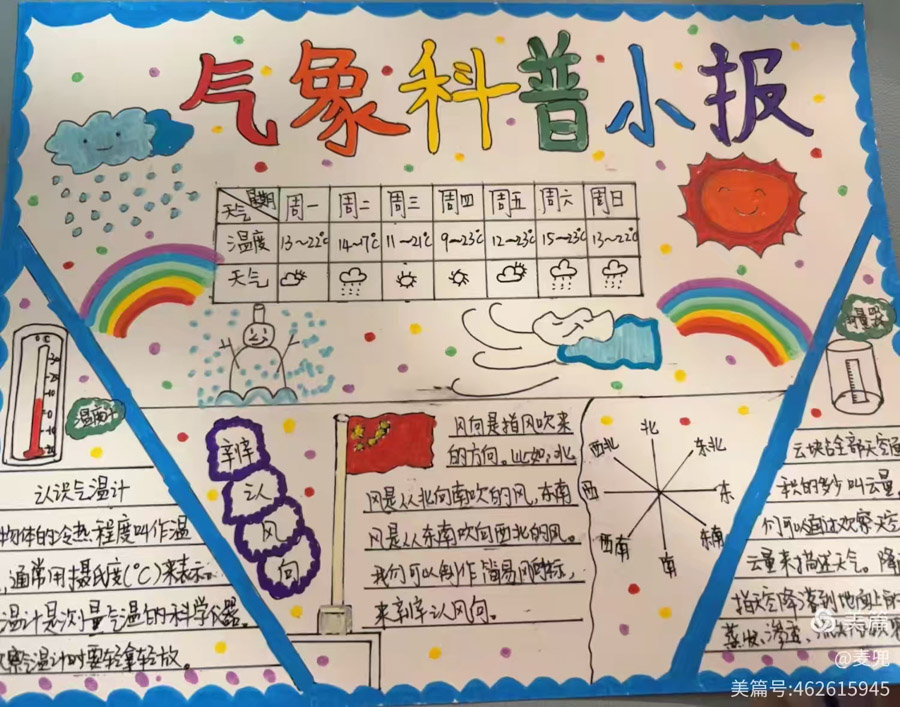 气象科普小报
天气 星期 周一 周二 周三 周四 周五 周六 周日
温度 13~22℃ 14~7℃ 11~21℃ 9~23℃ 12~23℃ 15~23℃ 13~22℃
天气
℃
温度计
认识气温计
物体的冷热程度叫作温
通常用摄氏度(℃)来表示。
温计是测量气温的科学仪器。
察气温计时要轻拿轻放。
辨
认
风
向
风向是指风吹来
的方向。比如:北
风是从北向南吹的风,东南
风是从东南吹向西北的风。
我们可以制作简易风向标,
来辨认风向。
北
西北 东北
西 东
西南 东南
南
量器
云块占全部天空面
积的多少叫云量,
们可以通过观察天空
云量来描述天气。降
指天空降落到地面上的
蒸发、渗透、流失
美篇
@麦兜
美篇号:462615945